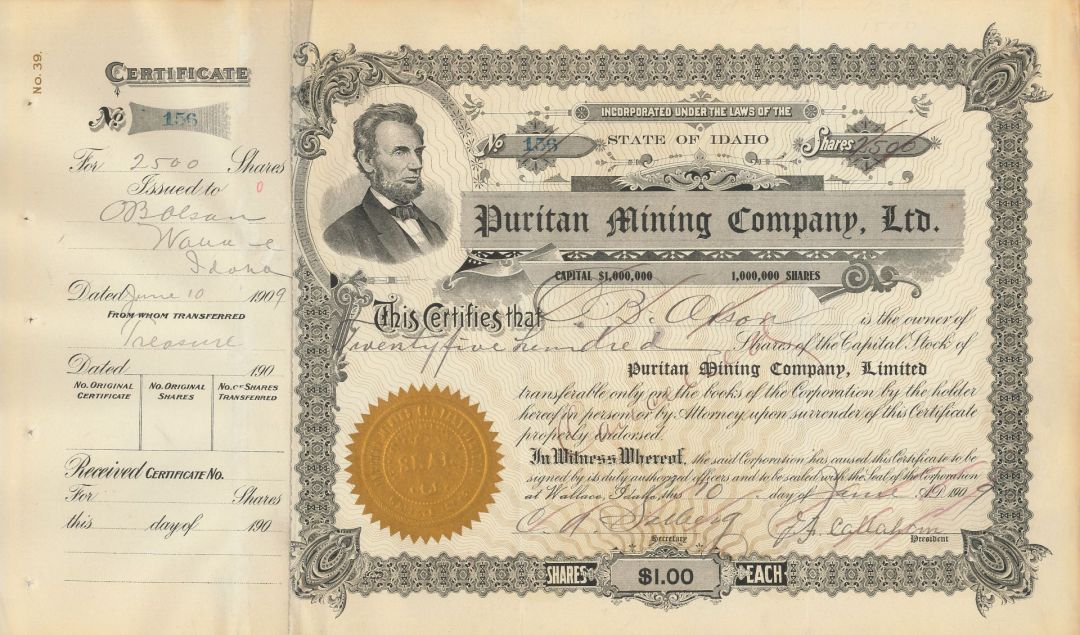 No. 39.
CERTIFICATE
No 156
For 2500 Shares
Issued to 0
O B Olson
Wallace
Idaho
Dated June 10 1909
FROM WHOM TRANSFERRED
Treasure
Dated 190
NO. ORIGINAL CERTIFICATE
NO. ORIGINAL SHARES
NO. OF SHARES TRANSFERRED
Received CERTIFICATE NO.
For Shares
this day of 190
INCORPORATED UNDER THE LAWS OF THE
No 156 STATE OF IDAHO Shares 2500
Puritan Mining Company, Ltd.
CAPITAL $1,000,000 1,000,000 SHARES
This Certifies that O. B. Olson is the owner of
Twentyfive hundred Shares of the Capital Stock of
Puritan Mining Company, Limited
transferable only on the books of the Corporation by the holder
hereof in person or by Attorney upon surrender of this Certificate
properly endorsed.
In Witness Whereof, the said Corporation has caused this Certificate to be
signed by its duly authorized officers and to be sealed with the Seal of the Corporation
at Wallace, Idaho, this 10 day of June A.D. 1909
Secretary President
SHARES $1.00 EACH